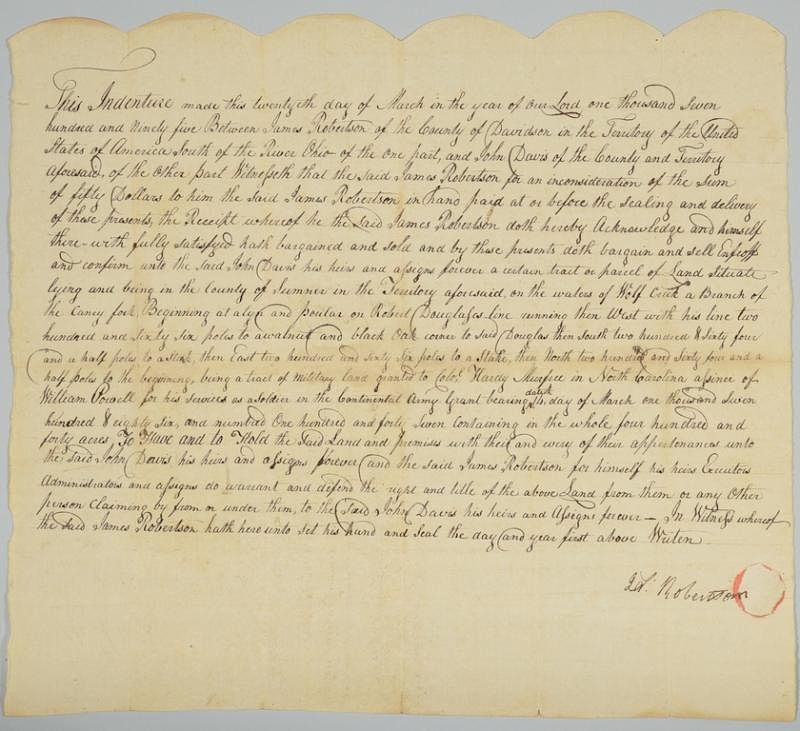 This Indenture made this twentyith day of March in the year of our Lord one thousand Seven
hundred and Ninety five Between James Robertson of the County of Davidson in the Territory of the United
States of America South of the River Ohio of the one part, and John Davis of the County and Territory
Aforesaid, of the Other part Witnesseth that the Said James Robertson for an inconsideration of the Sum
of fifty Dollars to him the Said James Robertson in hand paid at or before the Sealing and delivery
of these presents, the Receipt whereof he the said James Robertson doth hereby Acknowledge and himself
there-with fully satisfyed hath bargained and sold and by these presents doth bargain and sell Enfeoff
and confirm unto the Said John Davis his heirs and assigns forever a certain tract or parcel of Land Situate
lying and being in the County of Sumner in the Territory aforesaid, on the waters of Wolf Creek a Branch of
the Caney fork, Beginning at a and poular on Robert Douglases line running then West with his line two
hundred and Sixty Six poles to a walnut and black Oak corner to said Douglas then South two hundred & Sixty four
and a half poles to a stak, then East two hundred and sixty Six poles to a Stake, then North two hundred and Sixty four and a
half poles to the beginning, being a tract of military land granted to Colo. Hardy Murfree in North Carolina assinee of
William Powell for his Services as a Soldier in the Continental Army Grant bearing date 14 day of March one thousand Seven
hundred & eighty Six, and numbred One hundred and forty Seven containing in the whole four hundred and
forty acres, To Have and to Hold the Said Land and premises with their and every of their appertonances unto
the said John Davis his heirs and assigns forever and the said James Robertson for himself his heirs Executors
Administrators and assigns do warrant and defend the right and title of the above Land from them or any Other
person Claiming by from or under them, to the Said John Davis his heirs and Assigns forever — In Witness whereof
the said James Robertson hath here unto set his hand and Seal the day and year first above Writen
Robertson